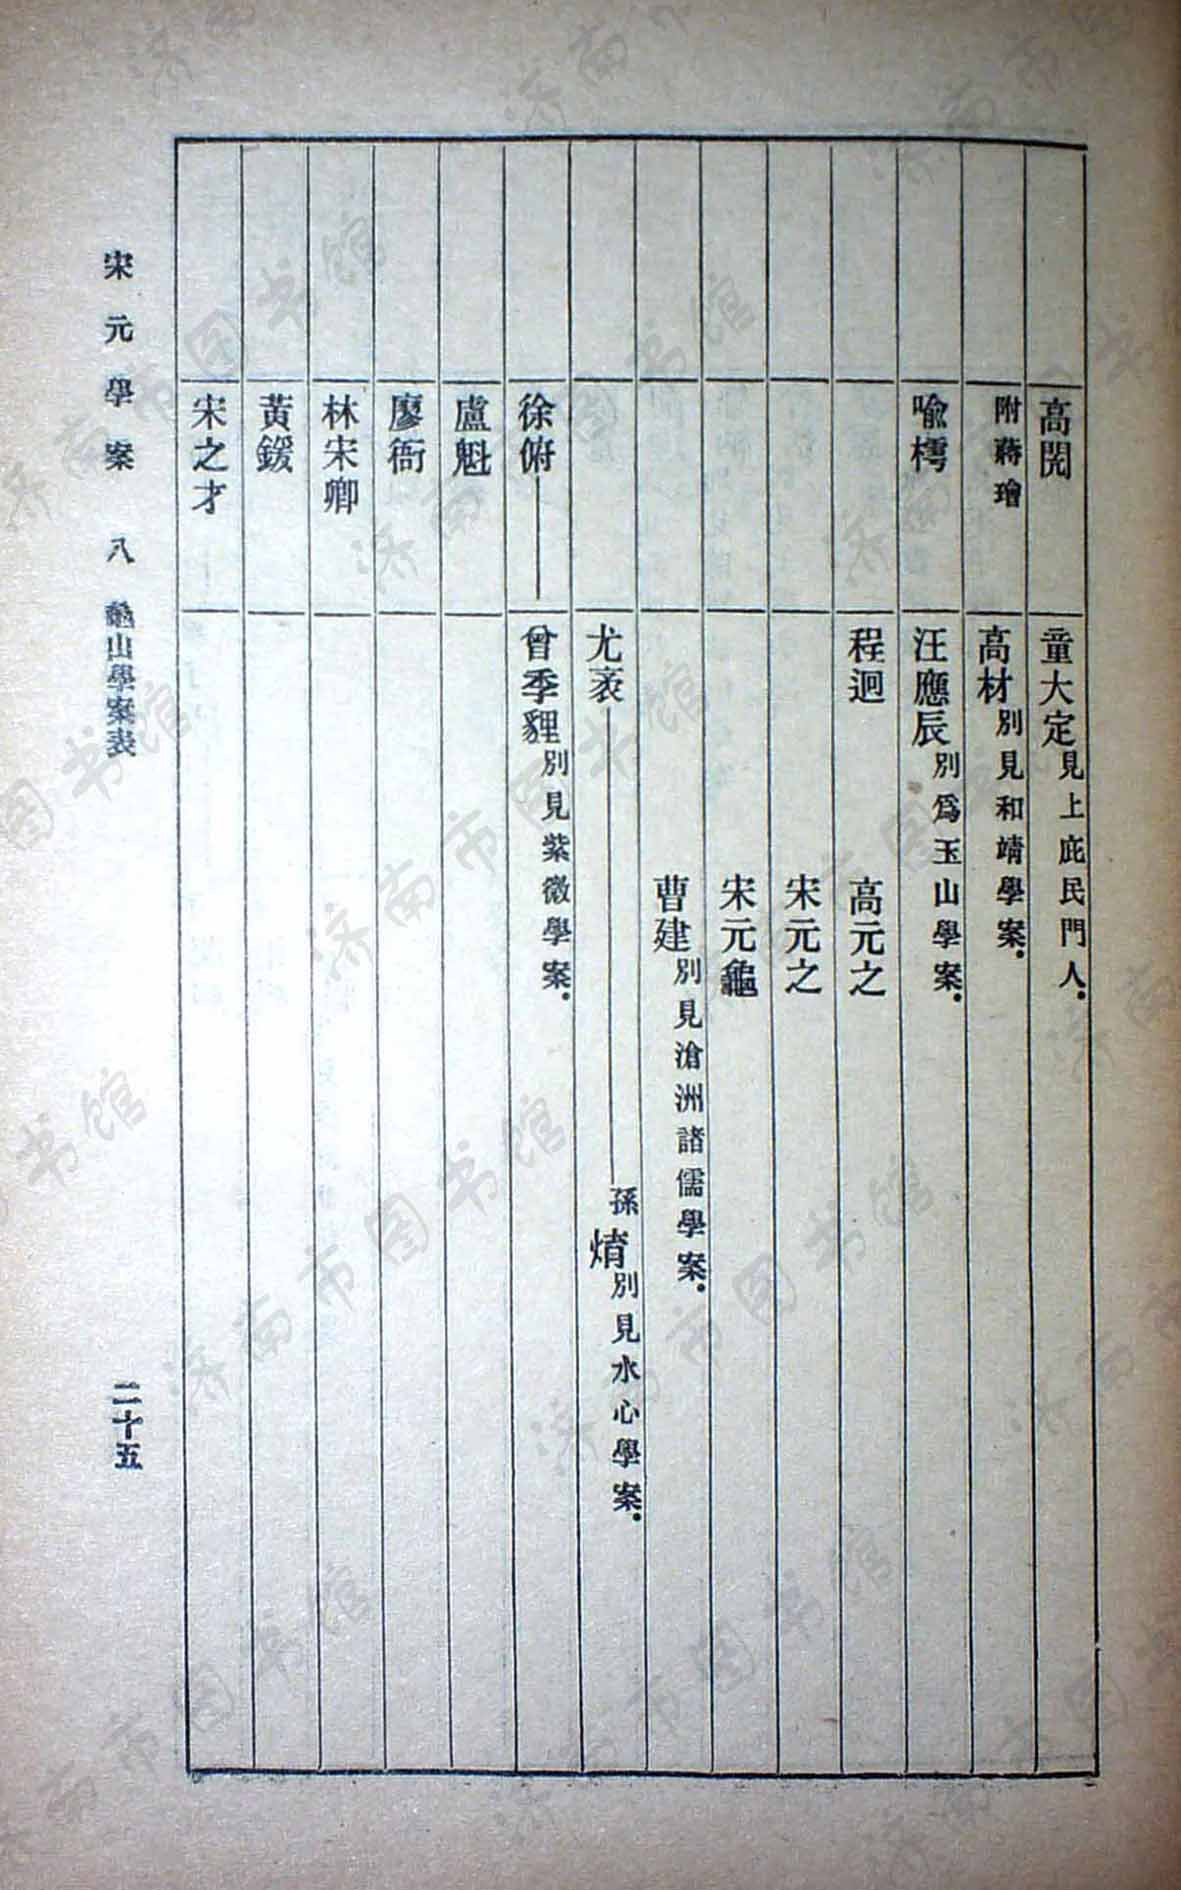 高閌 童大定見上庇民門人.
附蔣璯 高材別見和靖學案.
喩樗 汪應辰別爲玉山學案.
程迥 高元之
宋元之
宋元龜
曹建別見滄洲諸儒學案.
尤袤 孫焴別見水心學案.
徐俯 曾季貍別見紫微學案.
盧魁
廖衙
林宋卿
黃鍰
宋之才
宋元學案 八 龜山學案表 二十五
济南市图书馆